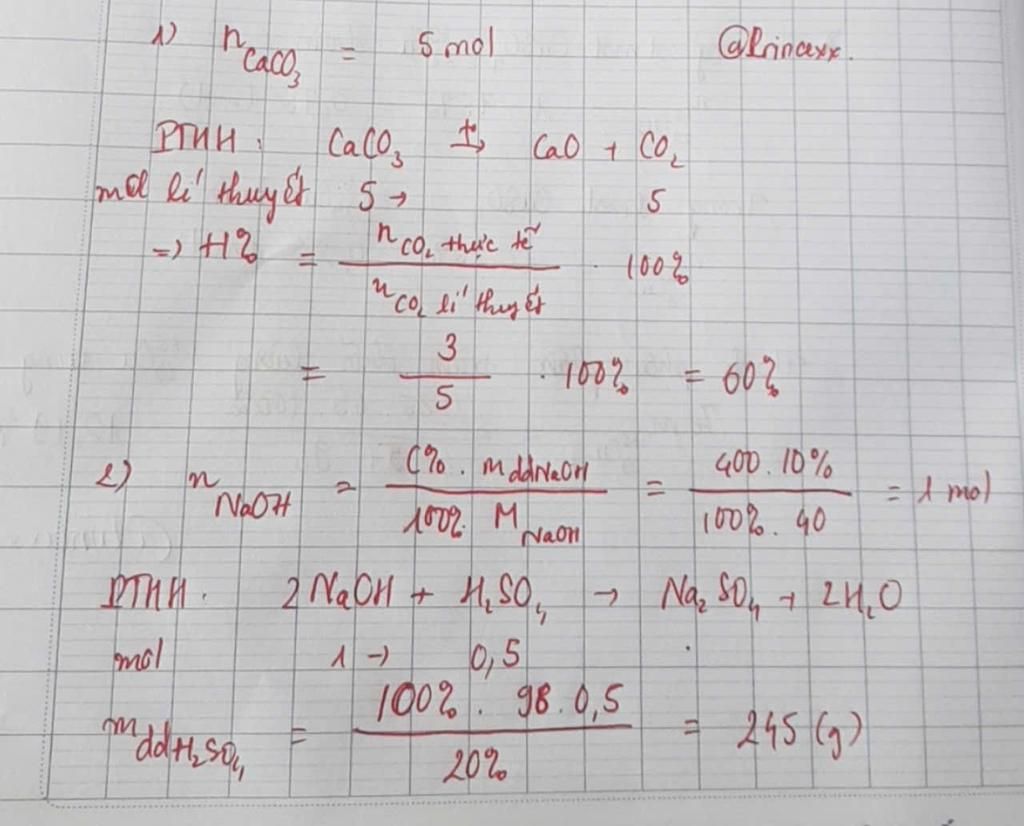 1) nCaCO₃ = 5 mol @lrinaxx.
PTHH: CaCO₃ t°→ CaO + CO₂
mol lí thuyết 5 → 5
=> H% = nCO₂ thực tế / nCO₂ lí thuyết . 100%
= 3/5 . 100% = 60%
2) nNaOH = C% . mddNaOH / 100% . MNaOH = 400 . 10% / 100% . 40 = 1 mol
PTHH. 2NaOH + H₂SO₄ → Na₂SO₄ + 2H₂O
mol 1 → 0,5
mddH₂SO₄ = 100% . 98 . 0,5 / 20% = 245 (g)